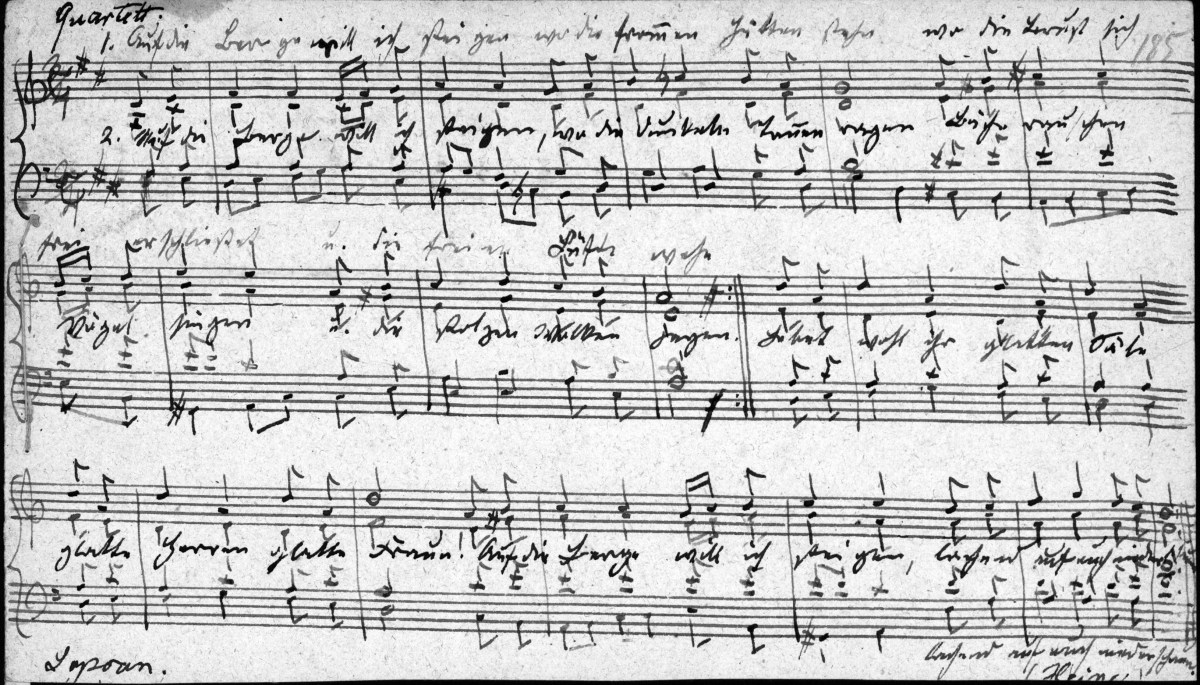 Quartett.
1. Auf die Berge will ich steigen wo die frommen Hütten stehn wo die Brust sich 185
2. Auf die Berge will ich steigen, wo die dunkeln Tannen ragen Bäche rauschen
frei erschließet u. die freien Lüfte wehn
Vögel singen u. die stolzen Wolken jagen. Lebet wohl ihr glatten Säle
glatte Herren glatte Frauen! Auf die Berge will ich steigen, lachend auf euch nieder
lachend auf euch niederschauen
(Heine)